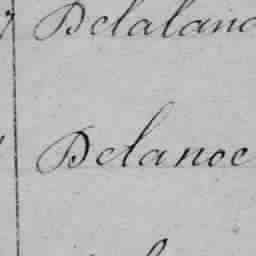 Delaland
Delanoe